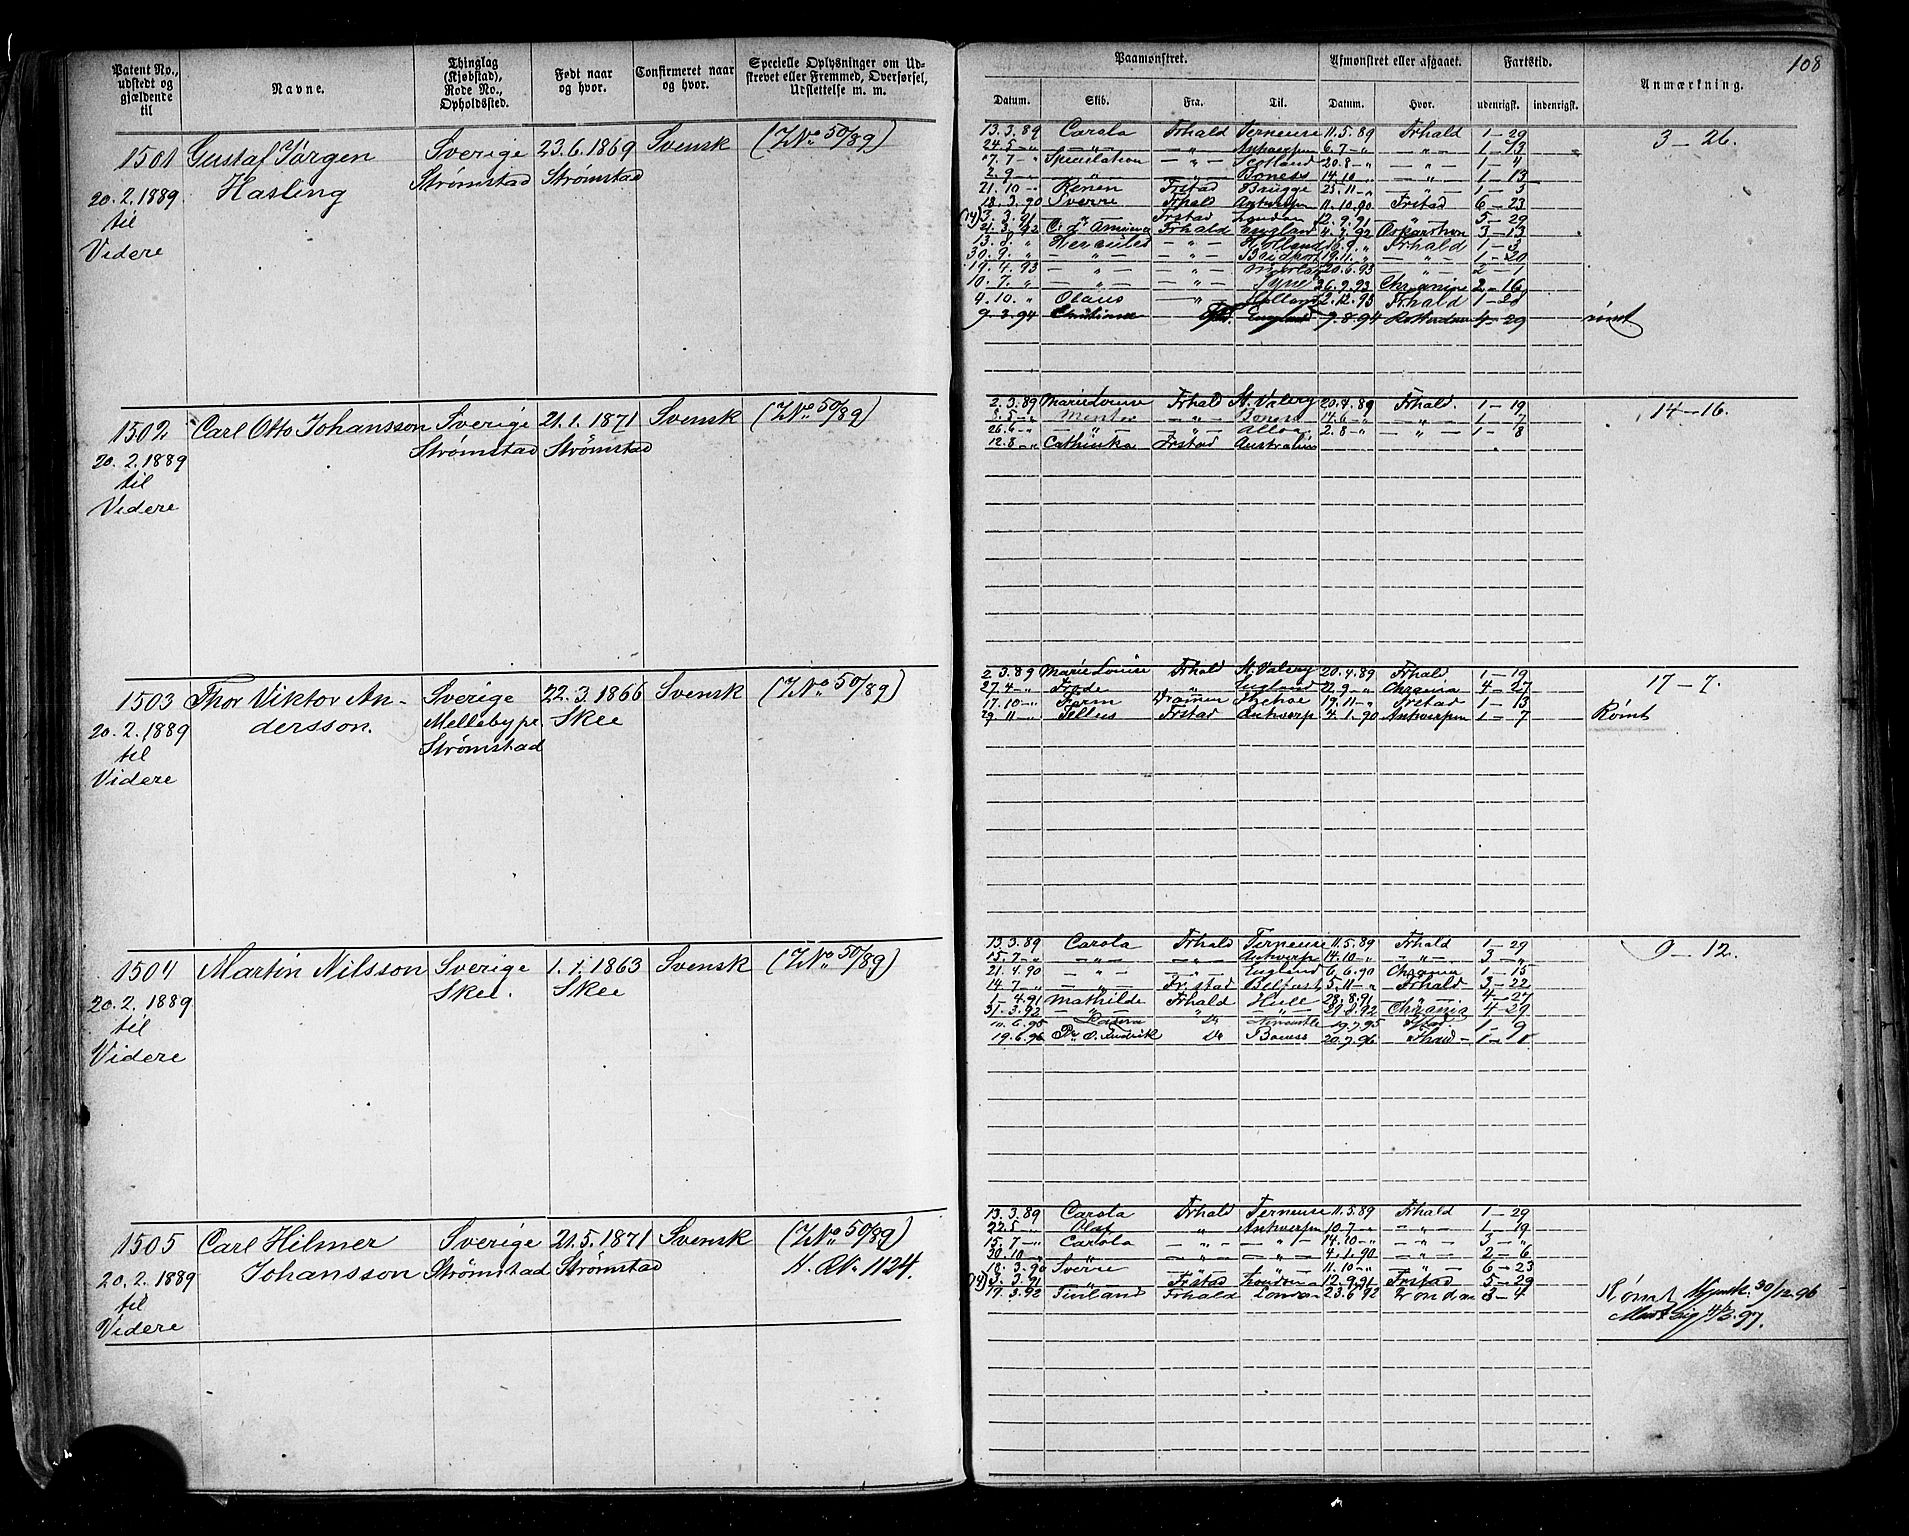 108
Patent No., udstedt og gjældende til
Navne.
Thinglag (Kjøbstad), Rode No., Opholdssted.
Født naar og hvor.
Confirmeret naar og hvor.
Specielle Oplysninger om Udstrevet eller Fremmed, Overførsel, Udslettelse m. m.
Paamønstret.
Afmønstret eller afgaaet.
Fartstid.
Anmærkning.
Datum. Skib. Fra. Til. Datum. Hvor. udenrigsk. indenrigsk.
1501 Gustaf Jørgen Sverige 23.6.1869 Svensk (J.No 50/89)
20.2.1889 Hasling Strømstad Strømstad
til
Videre
13.3.89 Carola Frhald Terneuse 11.5.89 Frhald 1–29 3–26.
24.5–„ –„– –„– Antwerpen 6.7–„ –„– 1–13
17.7–„ Speculation –„– Scotland 20.8–„ –„– 1–4
2.9–„ „ –„– Boness 14.10–„ –„– 1–13
21.10–„ Renen Frstad Brügge 25.11–„ –„– 1–3
18.3.90 Sverre Frhald Antwerpen 11.10.90 Frstad 6–23
(14) 3.3.91 –„– Frstad London 12.9.91 „ 5–29
21.3.92 Frhald England 3–13
13.8–„ Hercules –„– Holland 16.9.„ Frhald 1–3
30.9.„ –„– –„– 19.11.„ –„– 1–20
19.4.93 –„– –„– 20.6.93 –„– 2–1
10.7.„ –„– –„– Tyne 26.9.93 Chrania 2–16
4.10.„ Olaus –„– Holland 2.12.93 Frhald 1–28
9.3.94 Christiane England 9.8.94 Rotterdam 4–29 rømt
1502 Carl Otto Johansson Sverige 21.1.1871 Svensk (J.No 50/89)
20.2.1889 Strømstad Strømstad
til
Videre
2.3.89 Marie Louise Frhald St. Valery 20.4.89 Frhald. 1–19 14–16.
8.5–„ Mentor „ Boness 14.6–„ „ 1–7
26.6–„ „ „ Alloa 2.8–„ „ 1–8
12.8–„ Cathinka Frstad Australien
1503 Thor Viktor An- Sverige 22.3.1866 Svensk (J.No 50/89)
20.2.1889 dersson. Mellebypr. Skee
til Strømstad
Videre
2.3.89 Marie Louise Frhald St. Valery 20.4.89 Frhald 1–19 17–7.
27.4–„ Frode „ England 22.9–„ Chrania 4–27
17.10–„ Form Dramen Itzehoe 19.11–„ Frstad 1–13
29.11–„ Tellus Frstad Antwerp 4.1.90 Antwerpen 1–7 Rømt
1504 Martin Nilsson Sverige 1.1.1863 Svensk (J.No 50/89)
20.2.1889 Skee. Skee
til
Videre
13.3.89 Carola Frhald Terneuse 11.5.89 Frhald 1–29 9–12.
15.7–„ –„– „ Antwerpe 14.10–„ –„– 3–„
21.4.90 –„– –„– England 6.6.90 Chrania 1–15
14.7–„ –„– Fristad Belfast 5.11–„ Frhald 3–22
1–4.91 Mathilde Frhald Hull 28.8.91 –„– 4–27
31.3.92 –„– „ –„– 29.8.92 Chrania 4–29
10.6.95 Do 19.7.95 1–9
19.6.96 Do Boness 20.7.96 Fhald 1–1
1505 Carl Hilmer Sverige 21.5.1871 Svensk (J.No 50/89)
20.2.1889 Johansson Strømstad Strømstad A.RNo 1124.
til
Videre
13.3.89 Carola Frhald Terneuse 11.5.89 Frhald 1–29
22.5–„ Olaf „ Antwerpen 10.7–„ –„– 1–19
15.7–„ Carola –„– –„– 14.10–„ –„– 3–„
30.10–„ „ –„– –„– 4.1.90 –„– 2–6
18.3.90 Sverre –„– –„– 11.10–„ –„– 6–23
(14) 3.3.91 –„– Frstad London 12.9.91 Frstad 5–29
17.3.92 Finland Frhald London 23.6.92 London 3–4 Rømt 30/12.96